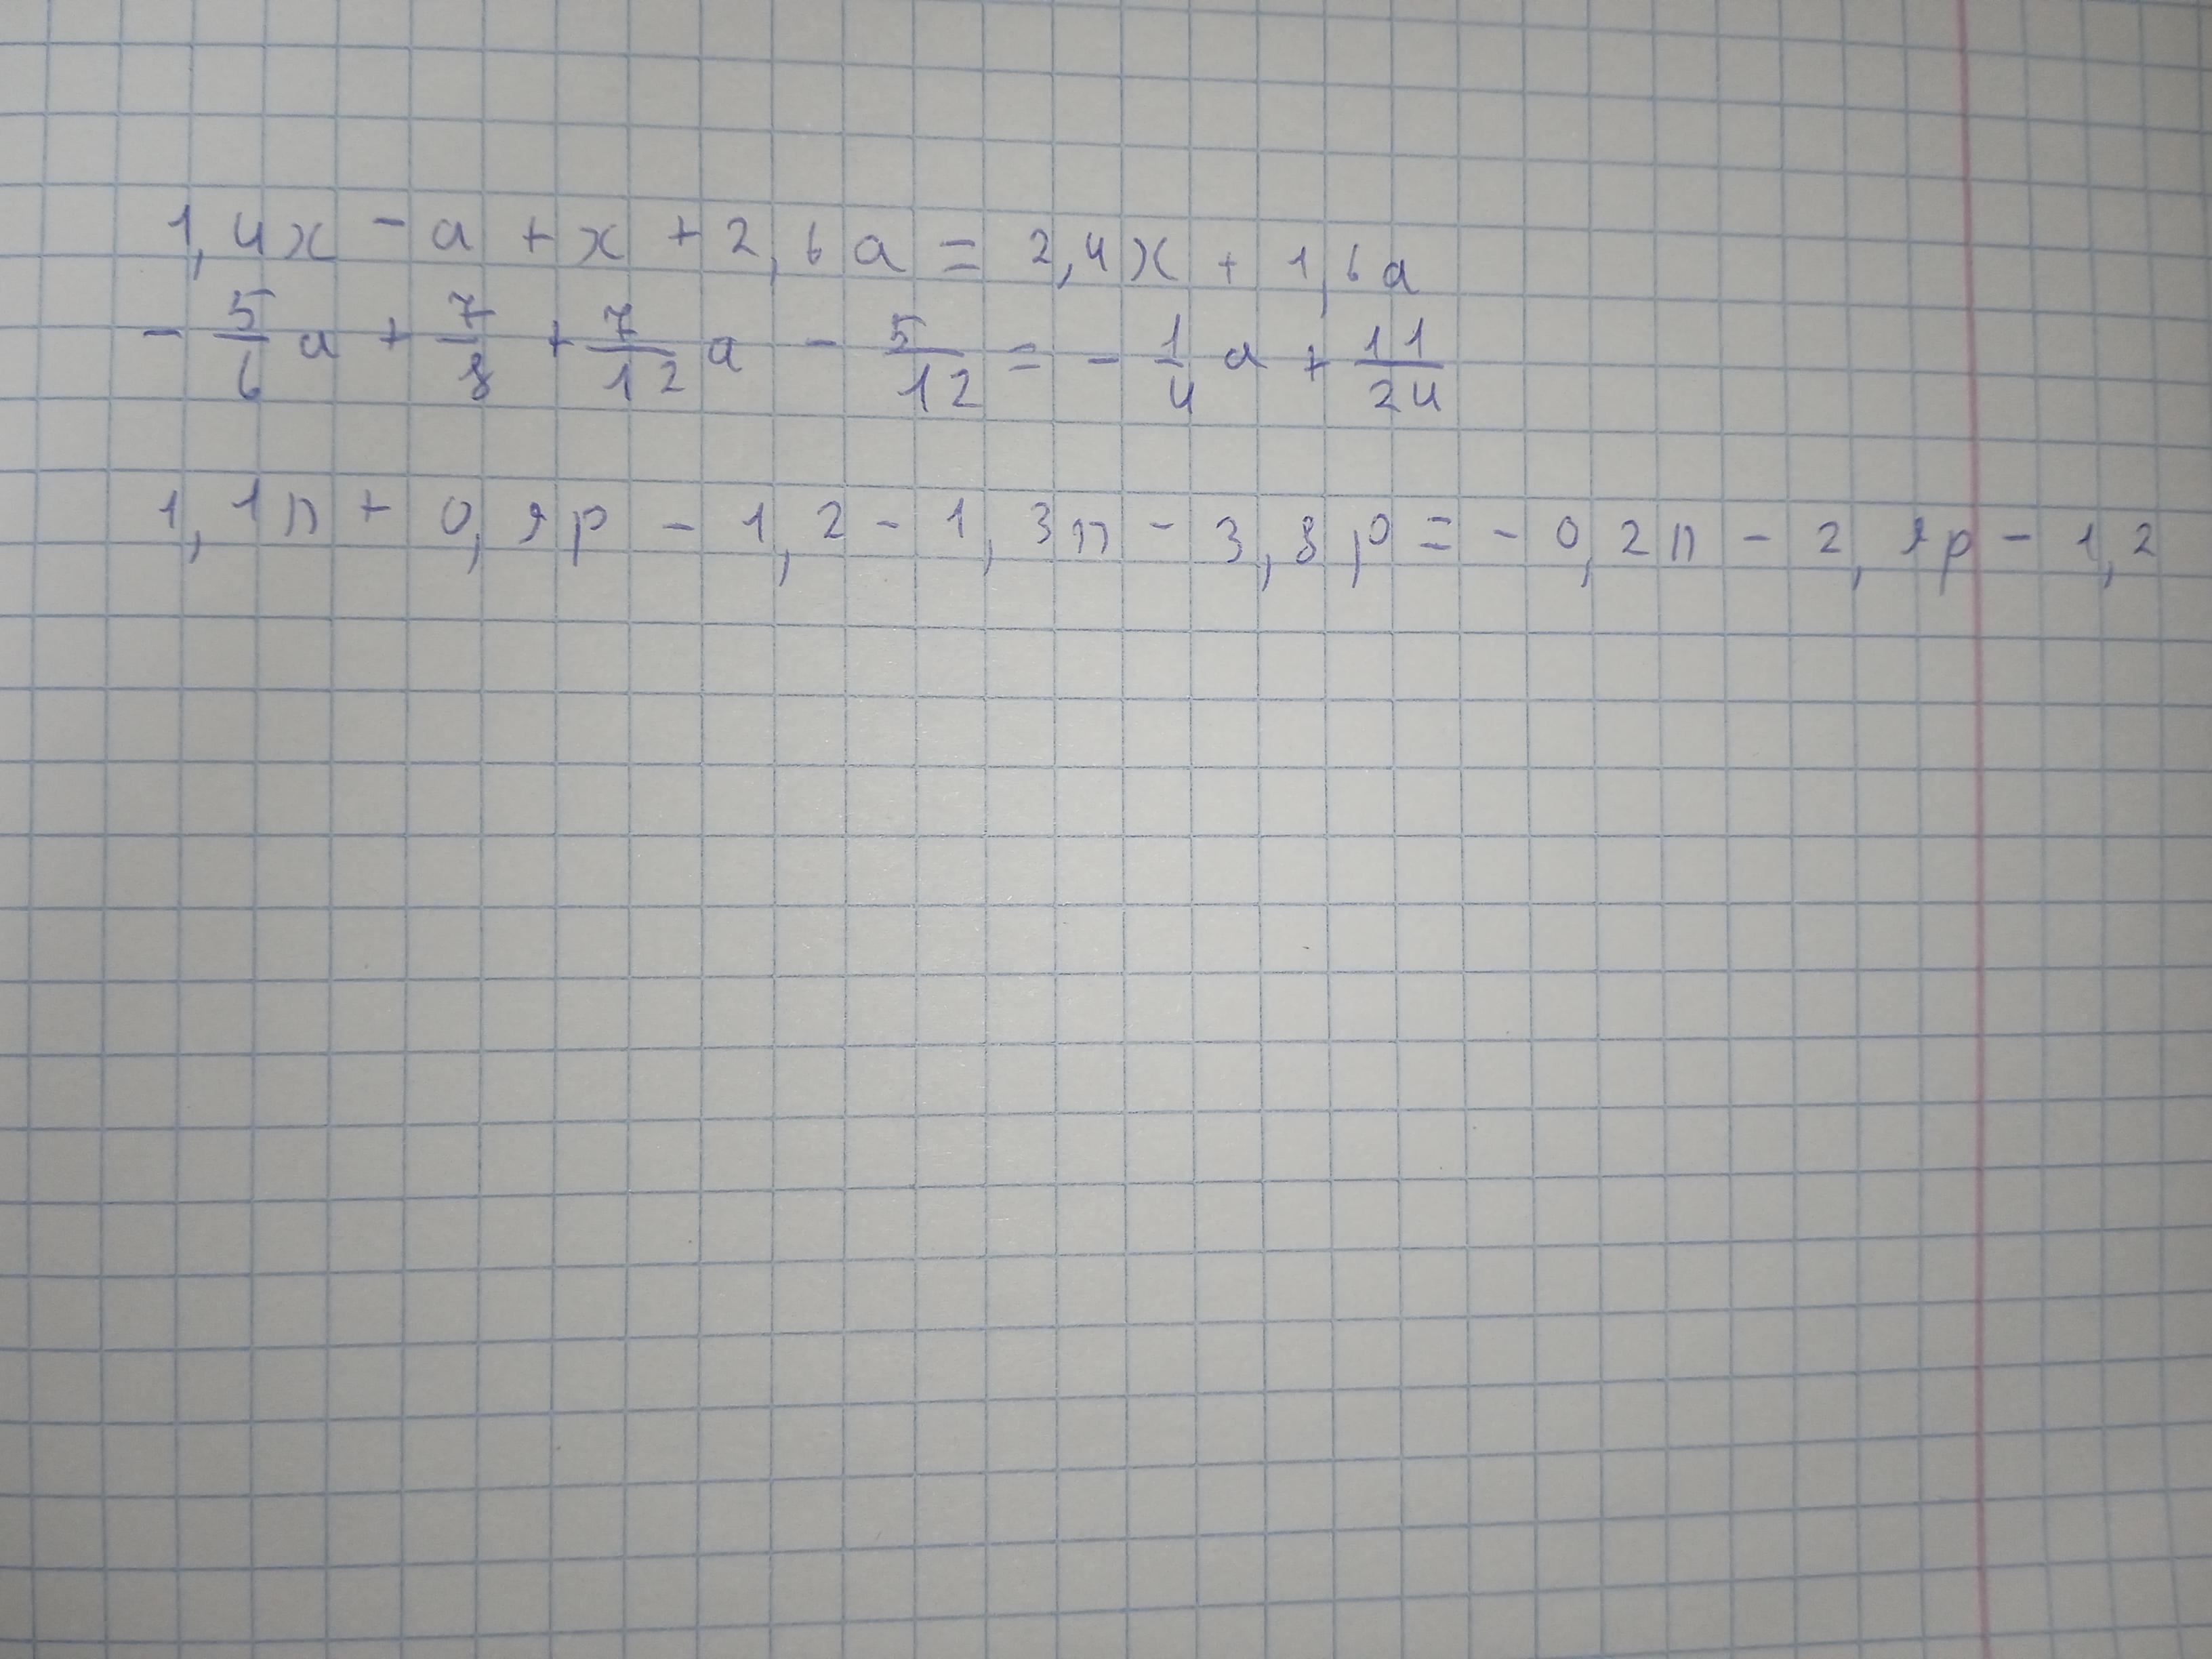 1,4x - a + x + 2,6a = 2,4x + 1,6a
- 5/6 a + 7/8 + 7/12 a - 5/12 = - 1/4 a + 11/24
1,1n + 0,9p - 1,2 - 1,3n - 3,8p = - 0,2n - 2,9p - 1,2